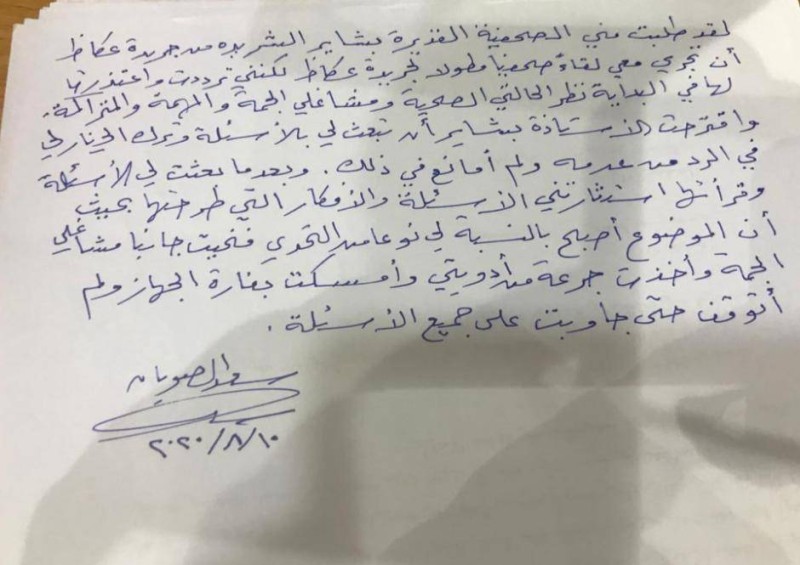 لقد طلبت مني الصحفية القديرة بشاير الشريده من جريدة عكاظ
أن تجري معي لقاءً صحفياً مطولا لجريدة عكاظ لكنني ترددت واعتذرت
لها في البداية نظر الحالتي الصحية ومشاغلي الجمة والمهمة والمتراكمة.
واقترحت الاستاذة بشاير أن تبعث لي بالأسئلة وترك الخيار لي
في الرد من عدمه ولم أمانع في ذلك. وبعدما بعثت لي الأسئلة
وقرأتها استثارتني الأسئلة والأفكار التي طرحتها بحيث
أن الموضوع أصبح بالنسبة لي نوعا من التحدي فنحيت جانبا مشاغلي
الجمة وأخذت جرعة من أدويتي وأمسكت بفارة الجهاز ولم
أتوقف حتى جاوبت على جميع الأسئلة.
سعد الصويان
٢٠٢٠/٨/١٠